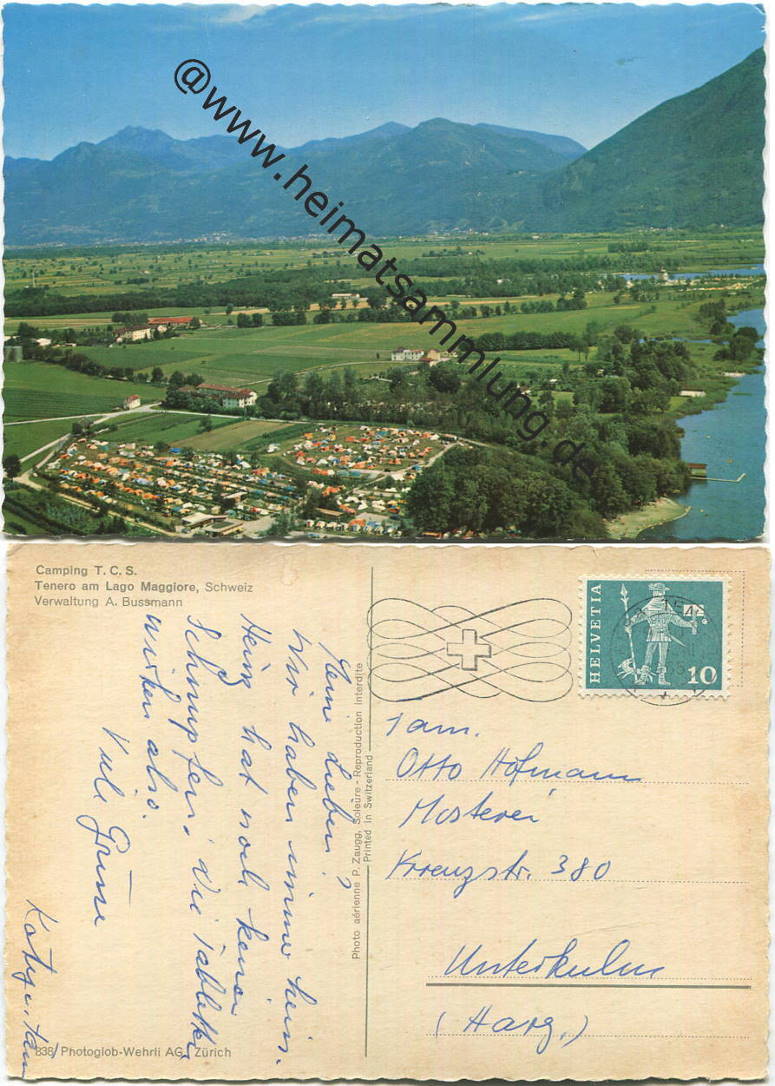 @www.heimatsammlung.de
Camping T.C.S.
Tenero am Lago Maggiore, Schweiz
Verwaltung A. Bussmann
Meine Lieben!
Wir haben immer heiss.
Heinz hat noch keinen
Schnupfen, die Tabletten
wirken also.
Viele Grüsse
Photo aérienne P. Zaugg, Soleure - Reproduction interdite
Printed in Switzerland
838/Photoglob-Wehrli AG, Zürich
HELVETIA
10
Fam.
Otto Hofmann
Mosterei
Kreuzstr. 380
Unterkulm
(Aarg.)